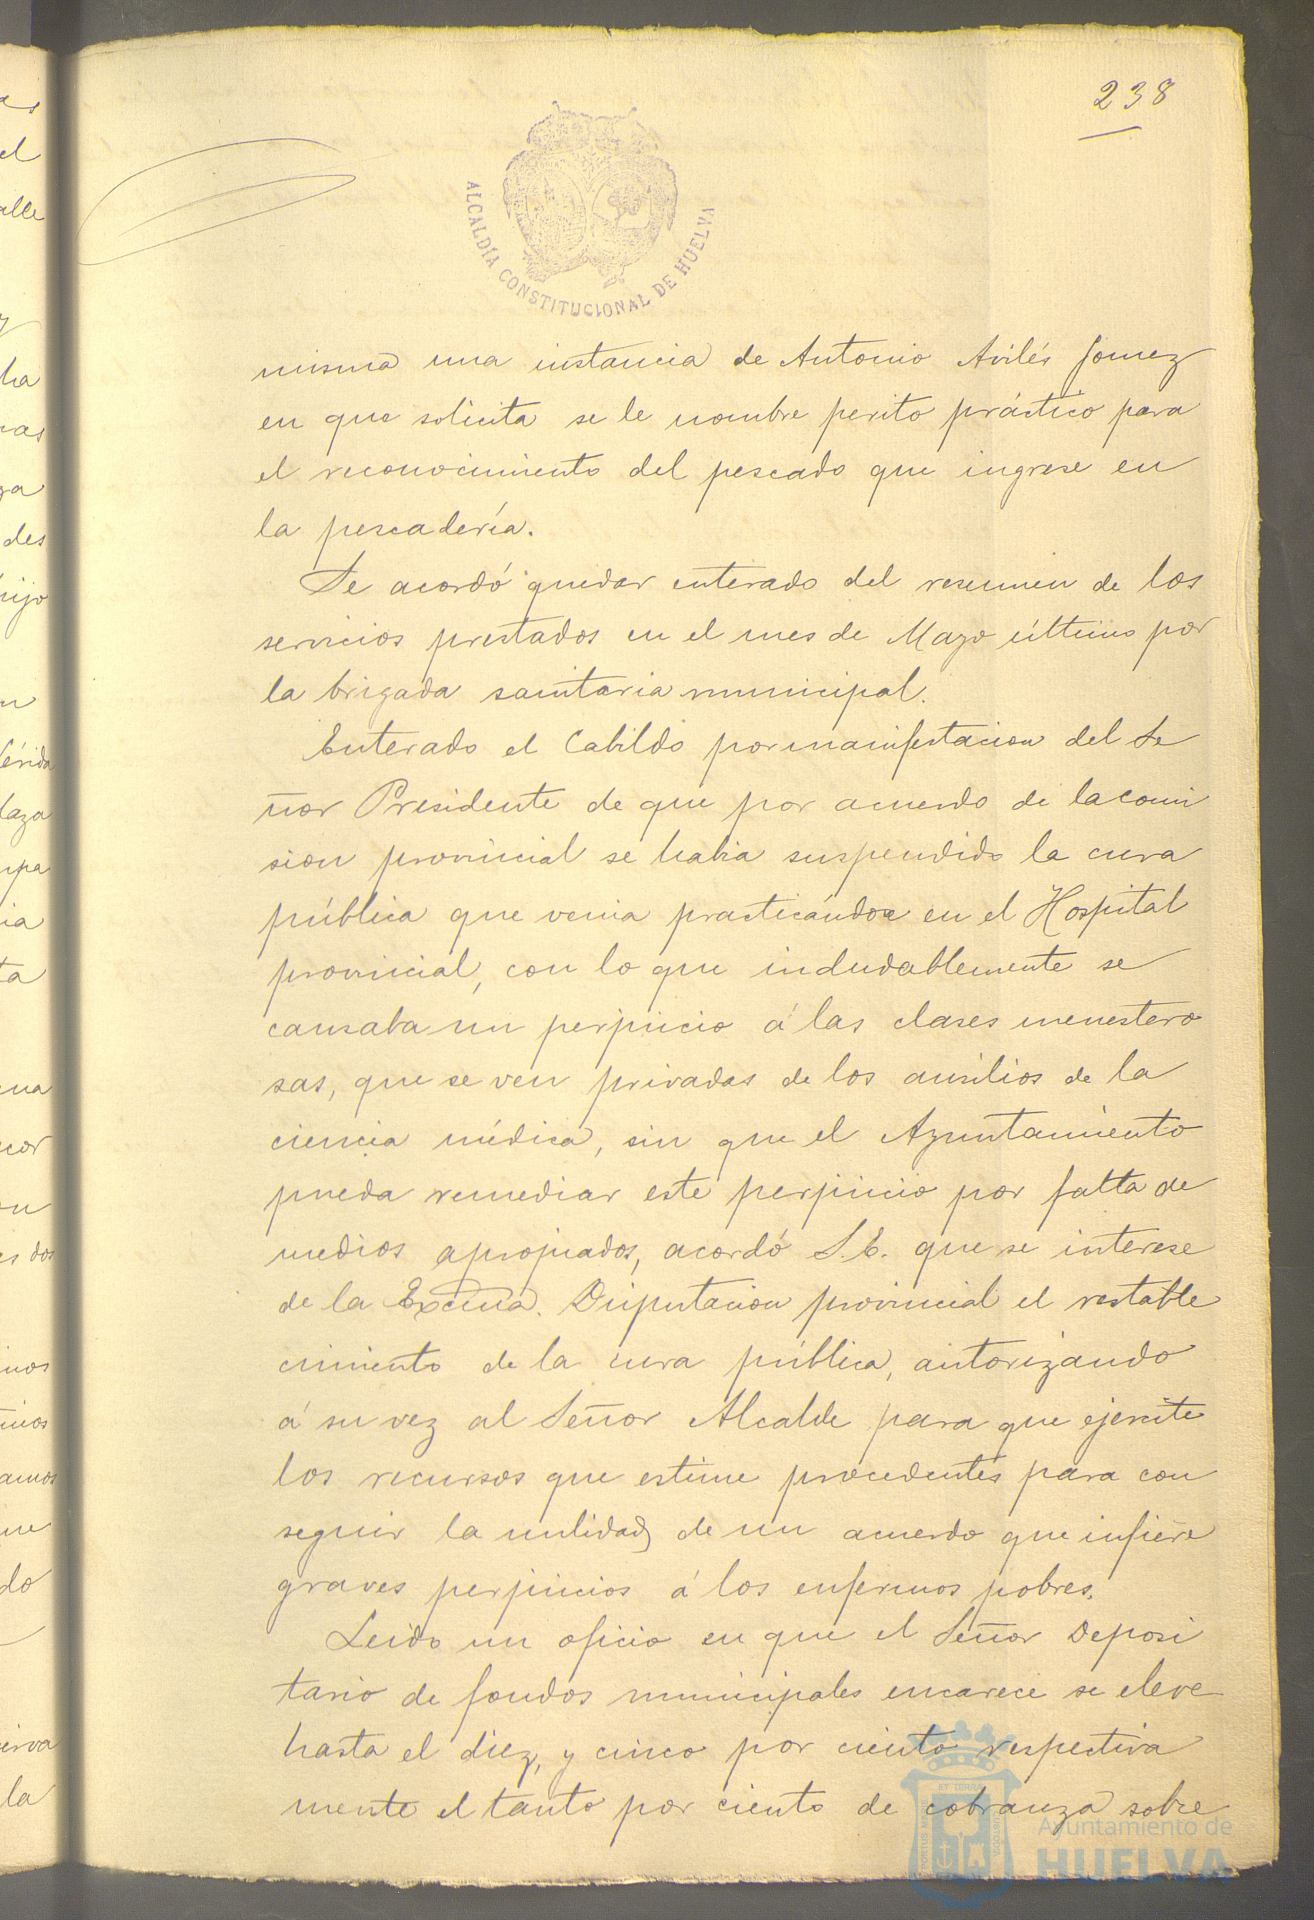 238
ALCALDÍA CONSTITUCIONAL DE HUELVA
misma una instancia de Antonio Avilés Gomez
en que solicita se le nombre perito práctico para
el reconocimiento del pescado que ingrese en
la pescadería.
Se acordó quedar enterado del resumen de los
servicios prestados en el mes de Mayo último por
la brigada sanitaria municipal.
Enterado el Cabildo por manifestacion del Se
ñor Presidente de que por acuerdo de la comi
sion provincial se habia suspendido la cura
pública que venia practicándose en el Hospital
provincial, con lo que indudablemente se
causaba un perjuicio á las clases menestero
sas, que se ven privadas de los ausilios de la
ciencia médica, sin que el Ayuntamiento
pueda remediar este perjuicio por falta de
medios apropiados, acordó S.E. que se interese
de la Excma. Diputacion provincial el restable
cimiento de la cura pública, autorizándo
á su vez al Señor Alcalde para que ejercite
los recursos que estime procedentes para con
seguir la nulidad de un acuerdo que infiere
graves perjuicios á los enfermos pobres.
Leido un oficio en que el Señor Deposi
tario de fondos municipales encarece se eleve
hasta el diez, y cinco por ciento respectiva
mente el tanto por ciento de cobranza sobre
Ayuntamiento de
HUELVA